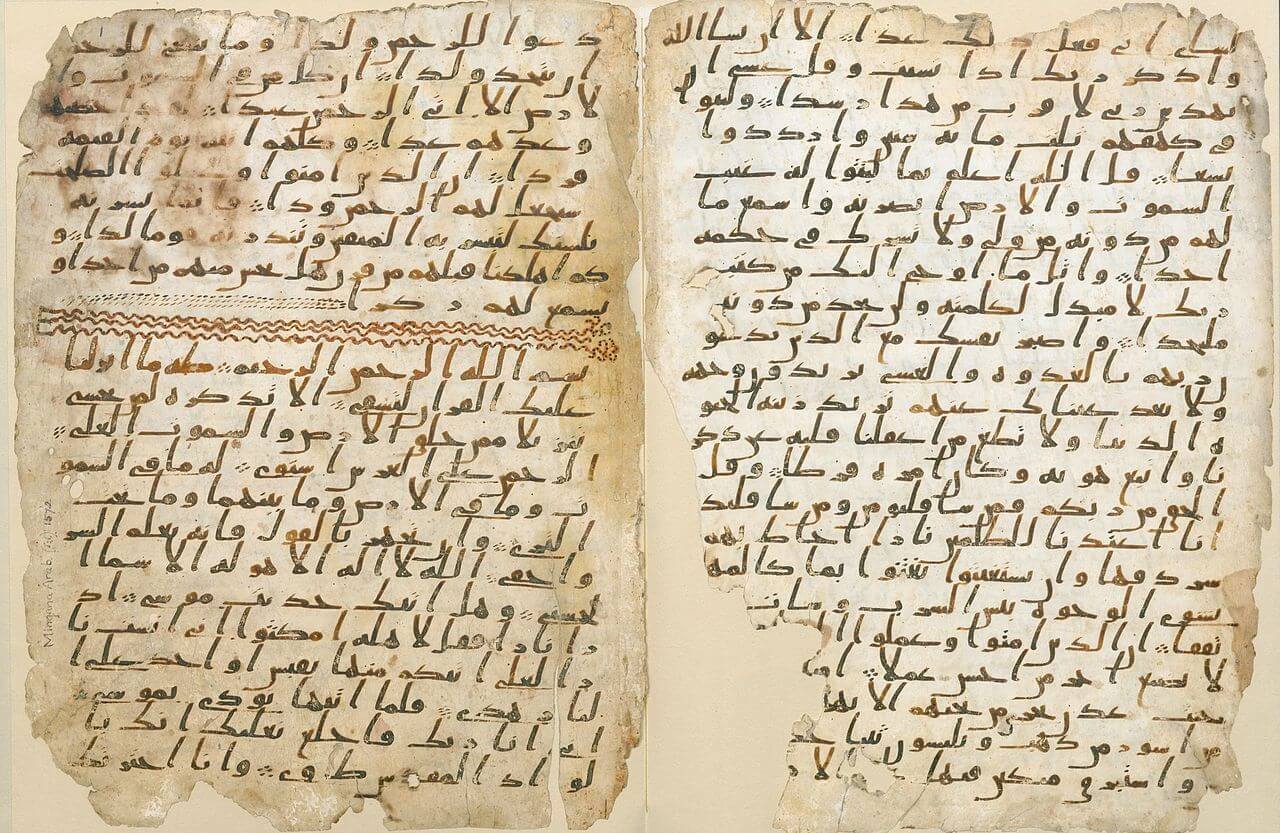 لشاي اني فعل ذلك غدا الا ان يشا الله
واذكر ربك اذا نسيت وقل عسى ان
يهدين ربي لاقرب من هذا رشدا ولبثوا
في كهفهم ثلث مائة سنين وازددوا
تسعا قل الله اعلم بما لبثوا له غيب
السموت والارض ابصر به واسمع ما
لهم من دونه من ولي ولا يشرك في حكمه
احدا واتل ما اوحي اليك من كتب
ربك لا مبدل لكلمته ولن تجد من دونه
ملتحدا واصبر نفسك مع الذين يدعو
ن ربهم بالغدوة والعشي يريدون وجهه
ولا تعد عيناك عنهم تريد زينة الحيو
ة الدنيا ولا تطع من اغفلنا قلبه عن ذكر
نا واتبع هويه وكان امره فرطا وقل
الحق من ربكم فمن شا فليومن ومن شا فليكفر
انا اعتدنا للظلمين نارا احاط بهم
سردقها وان يستغيثوا يغثوا بما كالمه
يشوي الوجوه بئس الشرب وسات
تفقا ان الذين امنوا وعملوا
لا نضيع اجر من احسن عملا
جنت عدن تجري من تحتهم الانها
من اسور من ذهب ويلبسون ثيابا
واستبرق متكين فيها
دعوا للرحمن ولدا وما ينبغي للرحمن
ان يتخذ ولدا ان كل من في السموت وا
لارض الا اتي الرحمن عبدا لقد احصيهم
وعدهم عدا وكلهم اتيه يوم القيمة
فردا ان الذين امنوا وعملوا الصلحت
سيجعل لهم الرحمن ودا فانما يسرنه
بلسنك لتبشر به المتقين وتنذر به قوما لدا و
كم اهلكنا قبلهم من قرن هل تحس منهم من احد او
تسمع لهم ركزا
بسم الله الرحمن الرحيم طه ما انزلنا
عليك القران لتشقى الا تذكرة لمن يخشى
تنزيلا ممن خلق الارض والسموت العلى
الرحمن على العرش استوى له ما في السمو
ت وما في الارض وما بينهما وما تحت
الثرى وان تجهر بالقول فانه يعلم السر
واخفى الله لا اله الا هو له الاسما ا
لحسنى وهل اتيك حديث موسى اذ
را نارا فقل لاهله امكثوا اني انست نا
را لعلي اتيكم منها بقبس او اجد على ا
لنار هدى فلما اتيها نودي يموسى
اني انا ربك فاخلع نعليك انك با
لواد المقدس طوى وانا اخترتك
Mingana Arab. [Isl.] 1572